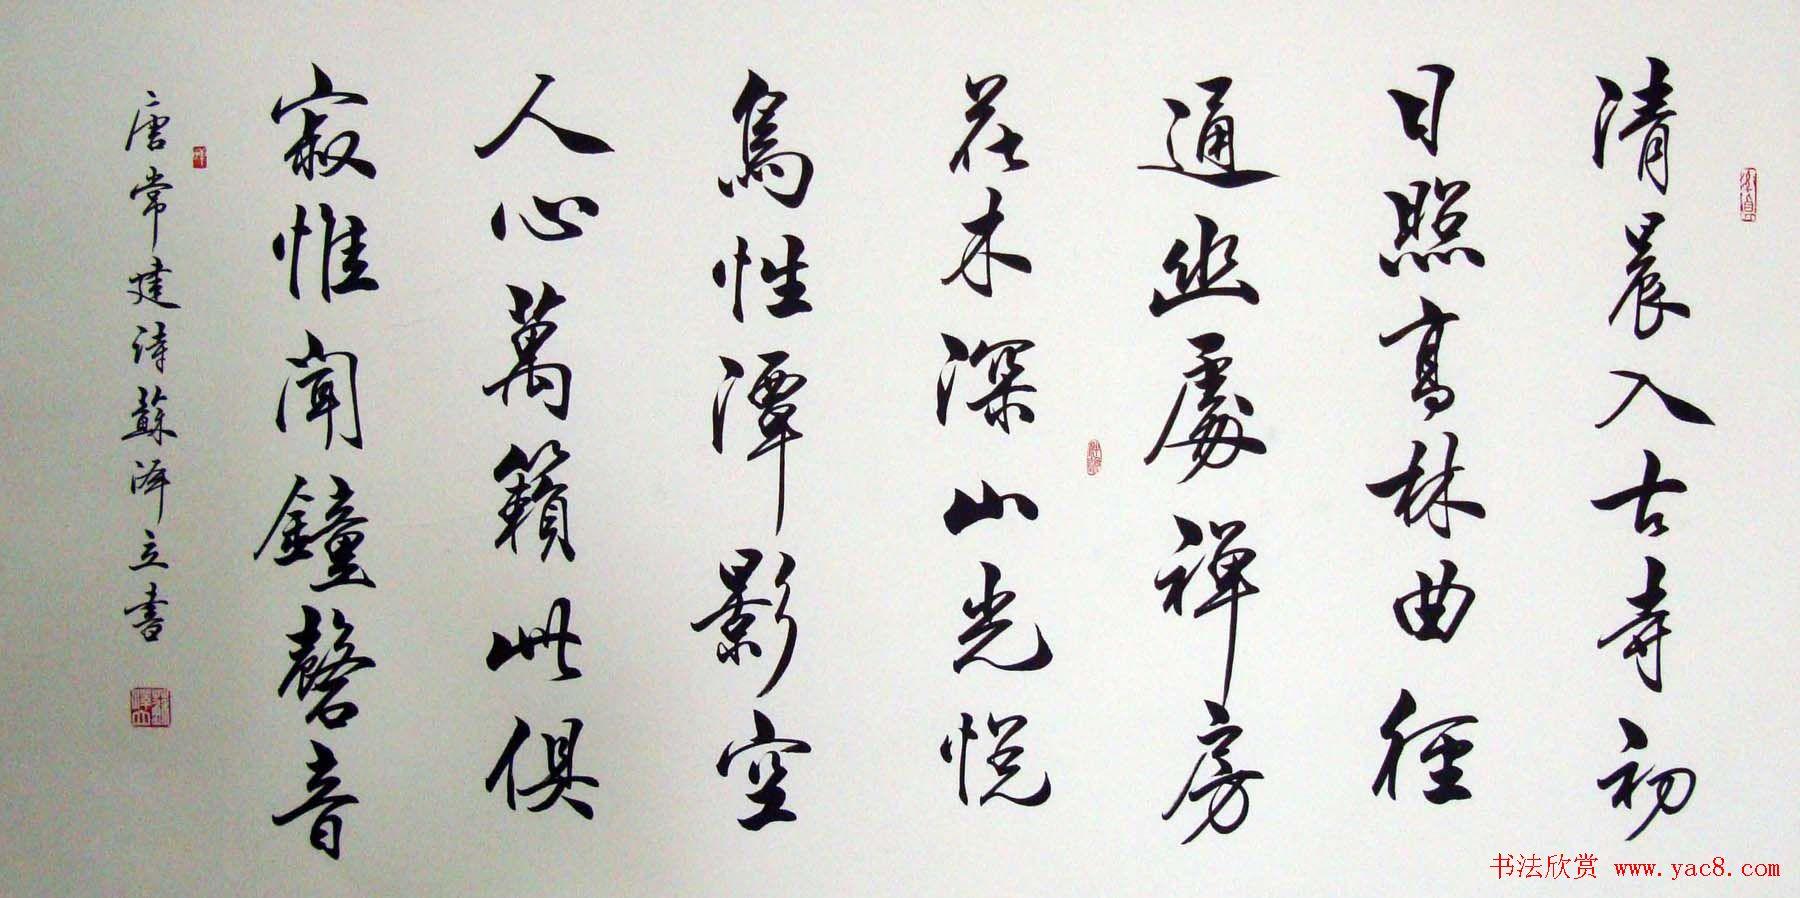 清晨入古寺初
日照高林曲径
通幽處禅房
花木深山光悦
鳥性潭影空
人心萬籟此俱
寂惟闻鐘磬音
唐常建诗蘇泽立書
书法欣赏 www.yac8.com